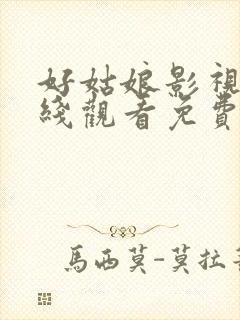 好姑娘影視
綫觀看免費
馬西莫-莫拉